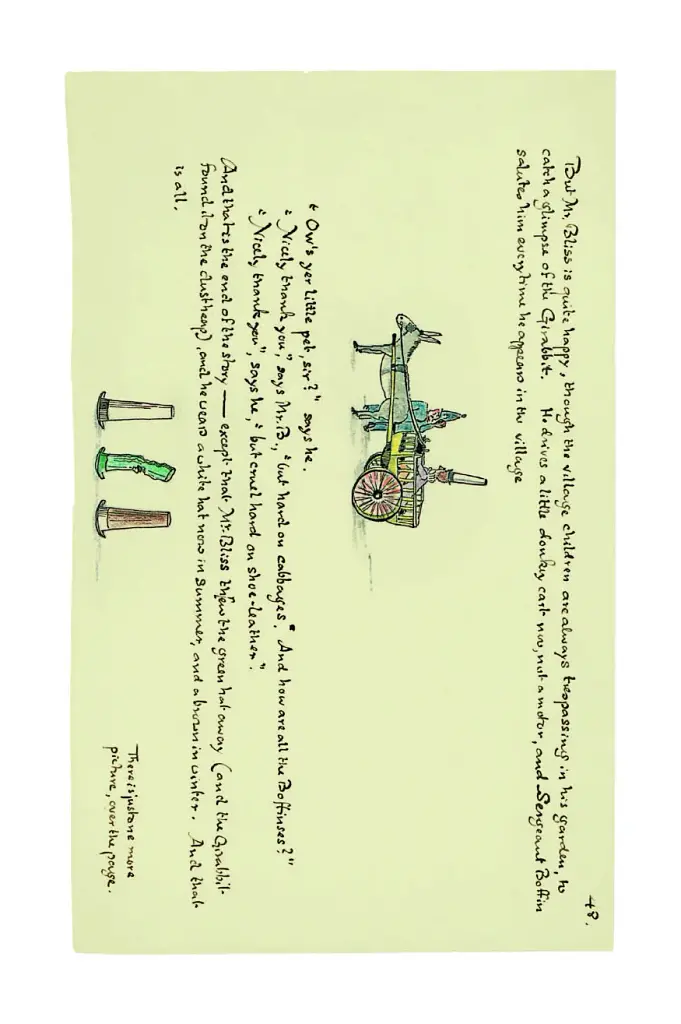 48.
But Mr. Bliss is quite happy, though the village children are always trespassing in his garden, to
catch a glimpse of the Girabbit. He drives a little donkey cart now, not a motor, and Sergeant Boffin
salutes him everytime he appears in the village
“Ow's yer little pet, sir?” says he.
“Nicely thank you,” says Mr. B., “but hard on cabbages. And how are all the Boffinses?”
“Nicely thank you”, says he, “but cruel hard on shoe-leather.”
And that is the end of the story — except that Mr. Bliss threw the green hat away (and the Girabbit
found it on the dustheap), and he wears a white hat now in summer, and a brown in winter. And that
is all.
There is just one more
picture, over the page.